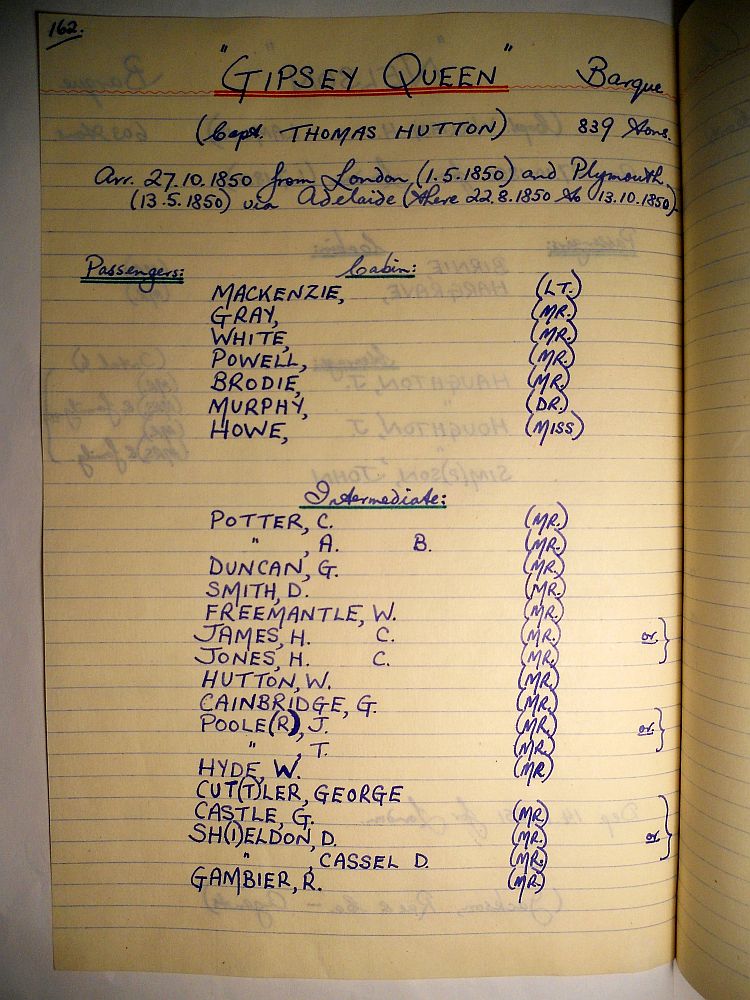 162.
"GIPSEY QUEEN" Barque
(Capt. THOMAS HUTTON) 839 tons.
Arr. 27.10.1850 from London (1.5.1850) and Plymouth
(13.5.1850) via Adelaide (there 22.8.1850 to 13.10.1850)
Passengers: Cabin:
MACKENZIE, (LT.)
GRAY, (MR.)
WHITE, (MR.)
POWELL, (MR.)
BRODIE, (MR.)
MURPHY, (DR.)
HOWE, (MISS)
Intermediate:
POTTER, C. (MR.)
" , A. B. (MR.)
DUNCAN, G. (MR.)
SMITH, D. (MR.)
FREEMANTLE, W. (MR.)
JAMES, H. C. (MR.) or. }
JONES, H. C. (MR.)
HUTTON, W. (MR.)
CAINBRIDGE, G. (MR.)
POOLE(R), J. (MR.) or. }
" , T. (MR.)
HYDE, W. (MR)
CUT(T)LER, GEORGE
CASTLE, G. (MR)
SH(I)ELDON, D. (MR.) or. }
" , CASSEL D. (MR.)
GAMBIER, R. (MR.)